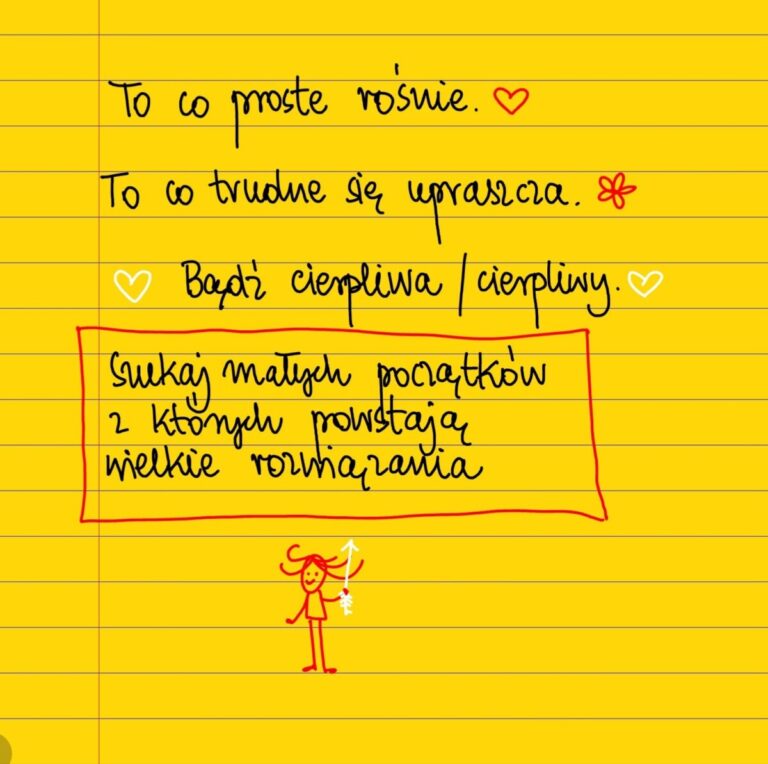 To co proste rośnie.
To co trudne się upraszcza.
Bądź cierpliwa / cierpliwy.
Szukaj małych początków
z których powstają
wielkie rozwiązania